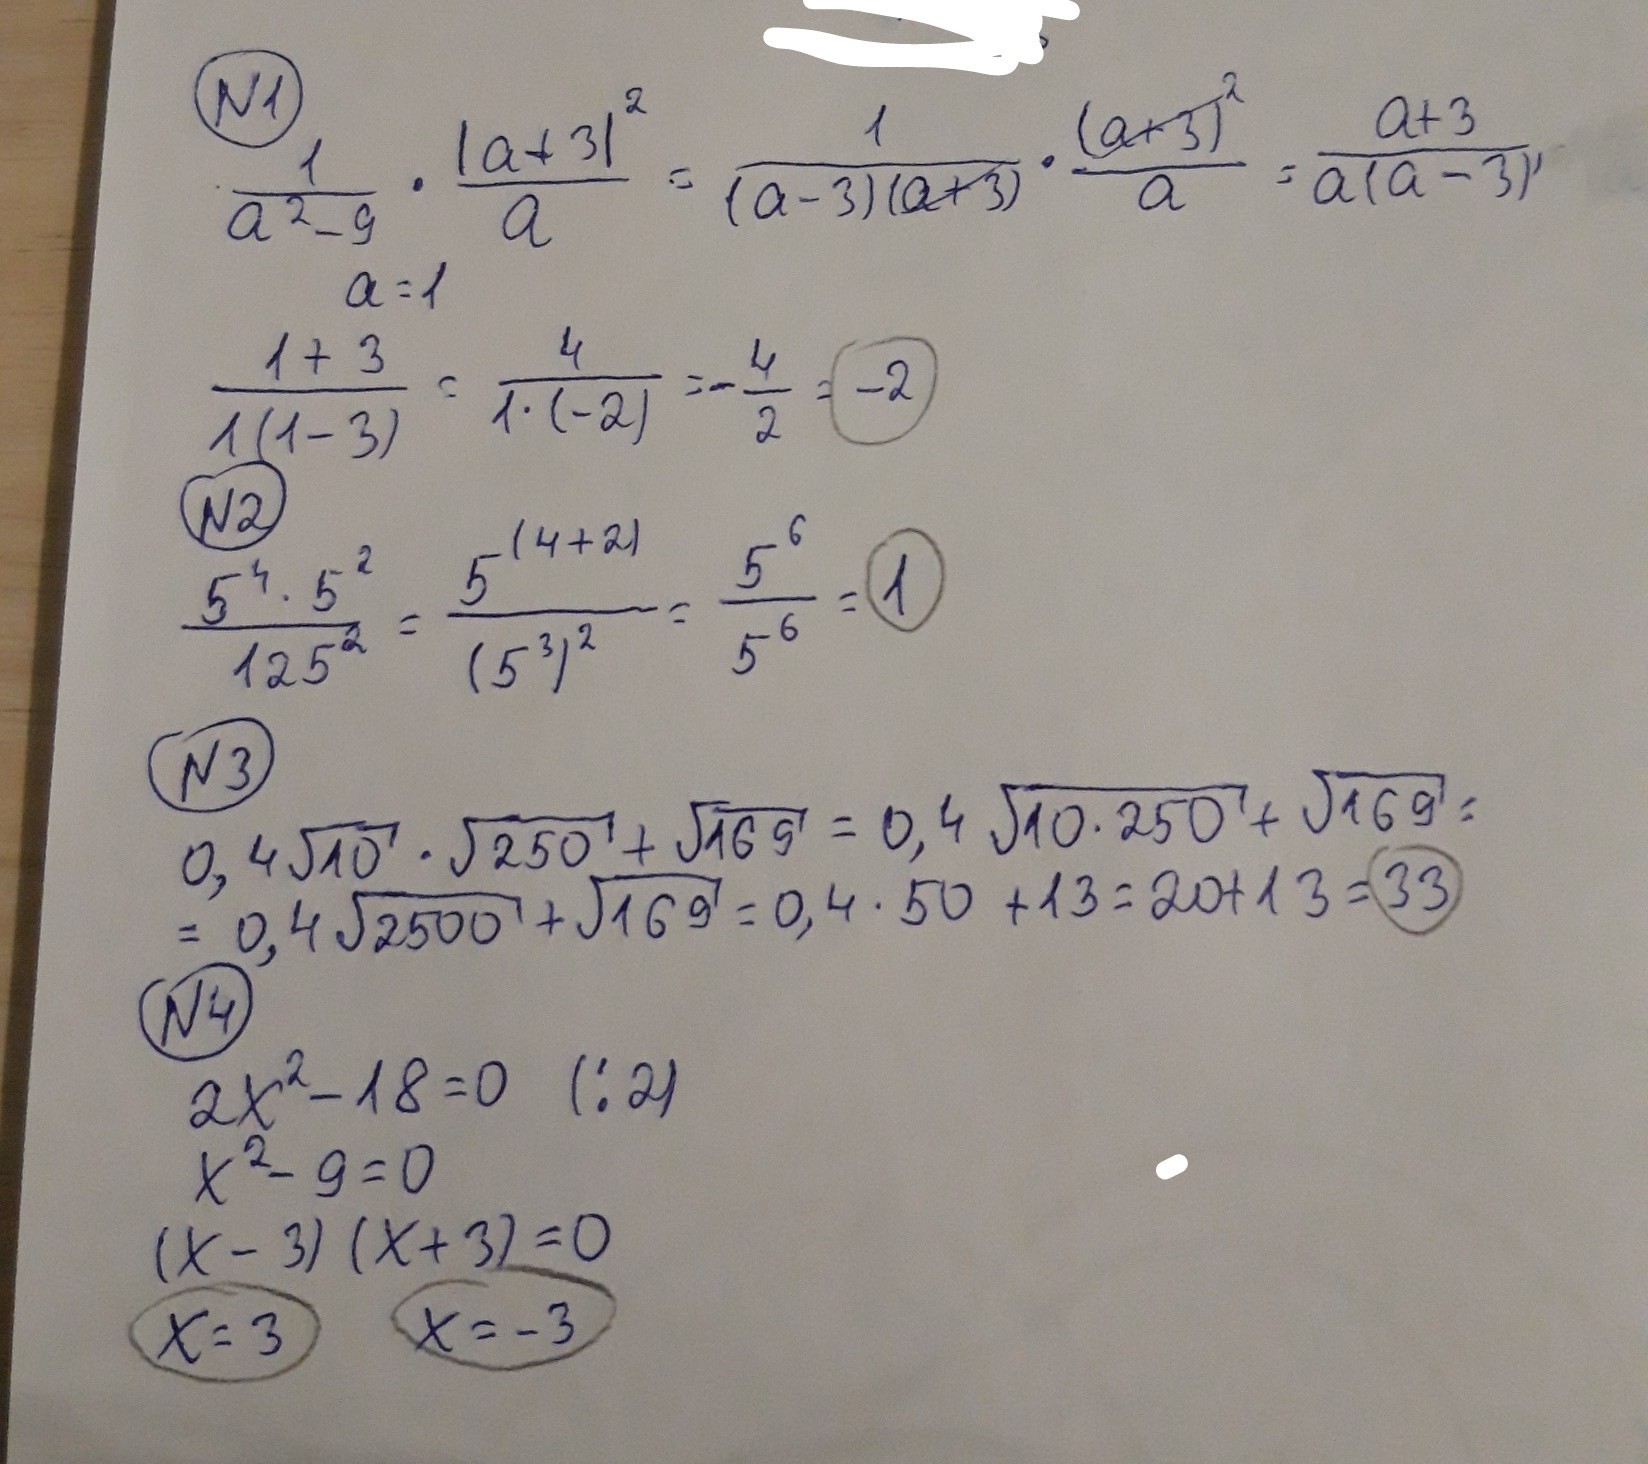 N1
1/(a²-9) · (a+3)²/a = 1/((a-3)(a+3)) · (a+3)²/a = (a+3)/(a(a-3))
a=1
(1+3)/(1(1-3)) = 4/(1·(-2)) = -4/2 = -2
N2
(5⁴·5²)/125² = 5^(4+2)/(5³)² = 5⁶/5⁶ = 1
N3
0,4√10 · √250 + √169 = 0,4√(10·250) + √169 =
= 0,4√2500 + √169 = 0,4·50 + 13 = 20+13 = 33
N4
2x²-18=0 (:2)
x²-9=0
(x-3)(x+3)=0
x=3 x=-3